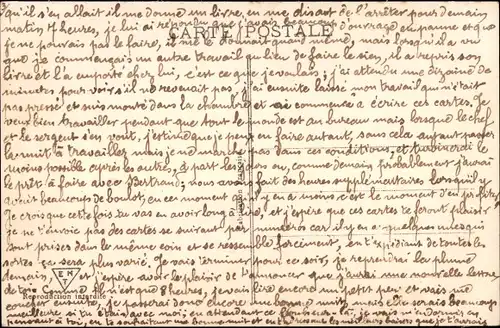 qu'il s'en allait il me donne un livre, en me disant de l'arrêter pour demain
matin 7 heures, je lui ai répondu que j'avais beaucoup d'ouvrage en panne et que
CARTE POSTALE
je ne pouvais pas le faire, il me le donnait quand même, mais lorsqu'il a vu
que je commençais un autre travail au lieu de faire le sien, il a repris son
livre et l'a emporté chez lui, c'est ce que je voulais, j'ai attendu une dizaine de
minutes pour voir s'il ne revenait pas, j'ai ensuite laissé mon travail qui n'était
pas pressé et suis monté dans la chambre et ai commencé à écrire ces cartes. Je
veux bien travailler pendant que tout le monde est au bureau mais lorsque le chef
et le sergent s'en vont, j'estime que je peux en faire autant, sans cela autant passer
la nuit à travailler mais je ne marche pas dans ces conditions, et turbinerai le
moins possible après les autres, à part les jours où, comme demain probablement j'aurai
le prêt à faire avec Bertrand, nous avons fait des heures supplémentaires lorsqu'il y
avait beaucoup de boulot, en ces moment où il n'y a c'est le moment d'en profiter,
Je crois que cette fois tu vas en avoir long et j'espère que ces cartes te feront plaisir
je ne t'envoie pas des cartes se suivant par numéros car il y en a quelques unes qui
sont prises dans le même coin et se ressemblent forcément, en t'expédiant de toutes les
sortes ça sera plus varié. Je vais terminer pour ce soir, je reprendrai la plume
demain, et j'espère avoir le plaisir de t'annoncer que j'aurai une nouvelle lettre
de toi. Comme il n'est que 8 heures, je vais lire encore un petit peu et vais me
Reproduction interdite
coucher ensuite, je passerai donc encore une bonne nuit, mais elle serait beaucoup
meilleure si tu étais avec moi, enfin je vais bien dormir quand même en
pensant à toi, en te souhaitant une bonne nuit et en